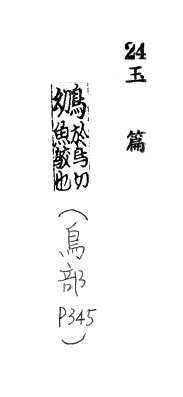 24
玉篇
鴢於鳥切
魚鵁也
(鳥部
P345)